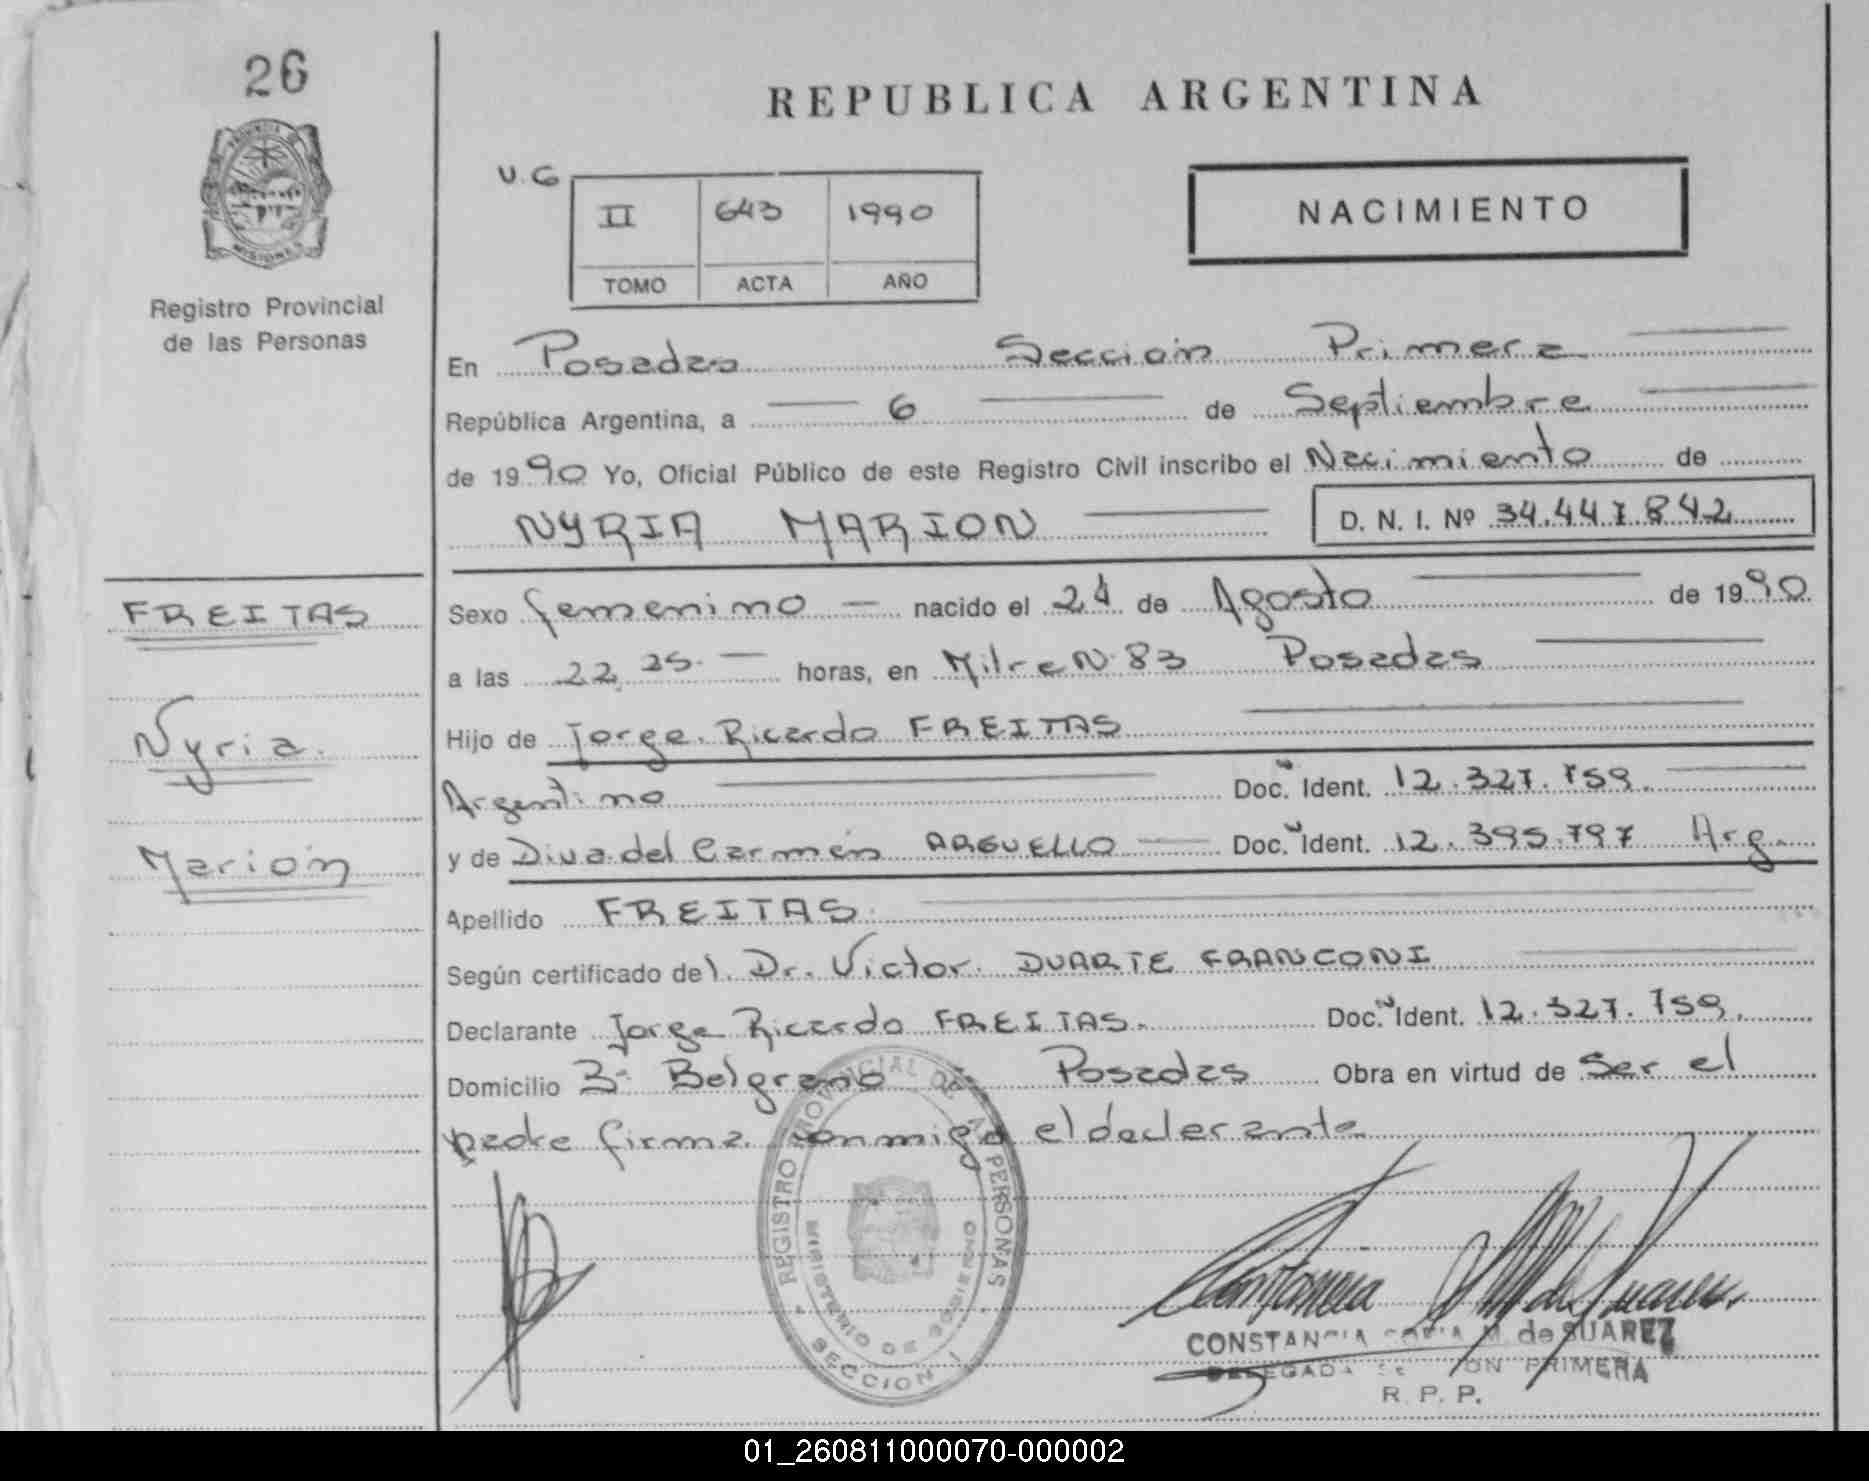 26
REPUBLICA ARGENTINA
PROVINCIA DE
MISIONES
Registro Provincial
de las Personas
V.G
II 643 1990
TOMO ACTA AÑO
NACIMIENTO
En Posadas Sección Primera
República Argentina, a 6 de Septiembre
de 1990 Yo, Oficial Público de este Registro Civil inscribo el Nacimiento de
NYRIA MARION D. N. I. Nº 34.447.842
FREITAS
Nyria
Marión
Sexo femenino nacido el 24 de Agosto de 1990
a las 22,25 horas, en Mitre Nº 83 Posadas
Hijo de Jorge Ricardo FREITAS
Argentino Doc. Ident. 12.327.759
y de Diva del Carmen ARGUELLO Doc. Ident. 12.395.797 Arg.
Apellido FREITAS
Según certificado del Dr. Victor DUARTE FRANCONI
Declarante Jorge Ricardo FREITAS. Doc. Ident. 12.327.759.
Domicilio Bº Belgrano Posadas Obra en virtud de Ser el
padre firma conmigo el declarante
REGISTRO PROVINCIAL DE LAS PERSONAS
MINISTERIO DE GOBIERNO
SECCION 1
CONSTANCIA M. de SUAREZ
DELEGADA SECCION PRIMERA
R. P. P.
01_260811000070-000002